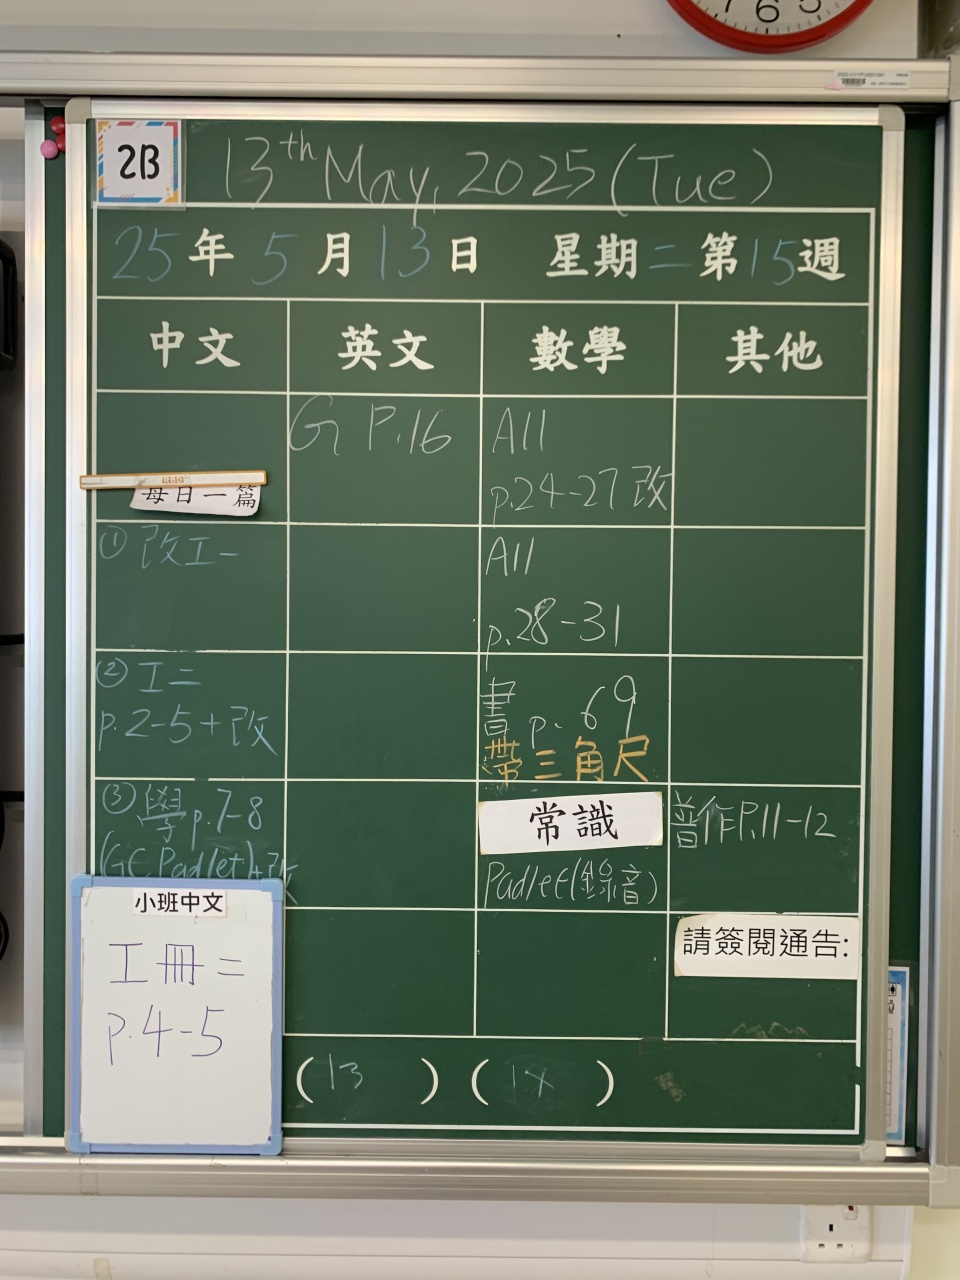 7 6 5
2B
13th May, 2025 (Tue)
25年5月13日 星期二 第15週
中文 英文 數學 其他
G P.16
All
p.24-27 改
每日一篇
① 改工一
All
p.28-31
② 工二
p.2-5+改
書 p. 69
帶三角尺
③ 學 p.7-8
(GC Padlet)+改
常識
Padlet(錄音)
普作P.11-12
小班中文
工冊二
p.4-5
請簽閱通告:
(13) (14)